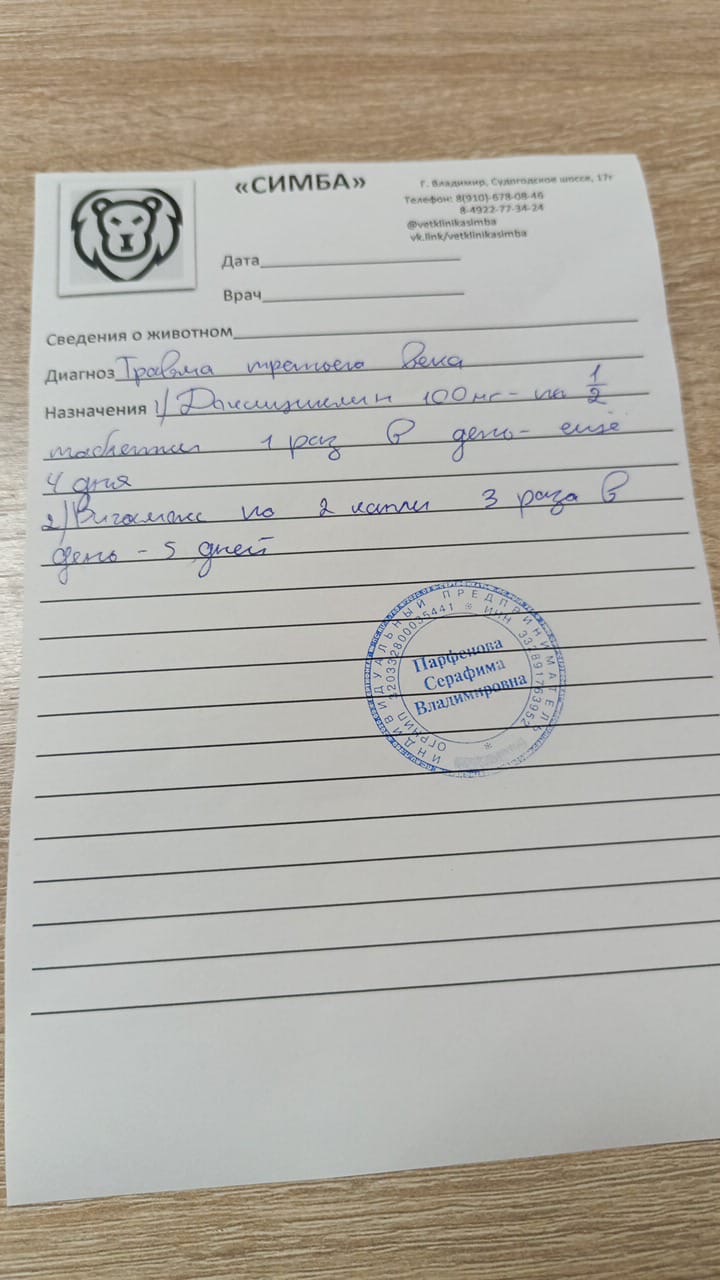 «СИМБА»
Г. Владимир, Судогодское шоссе, 17г
Телефон: 8(910)-678-08-46
8-4922-77-34-24
@vetklinikasimba
vk.link/vetklinikasimba
Дата
Врач
Сведения о животном
Диагноз Травма третьего века
Назначения 1) Доксициклин 100мг - по 1/2
таблетки 1 раз в день - ещё
4 дня
2) Вигамокс по 2 капли 3 раза в
день - 5 дней
ИНДИВИДУАЛЬНЫЙ ПРЕДПРИНИМАТЕЛЬ
ОГРНИП
ИНН
Парфенова
Серафима
Владимировна